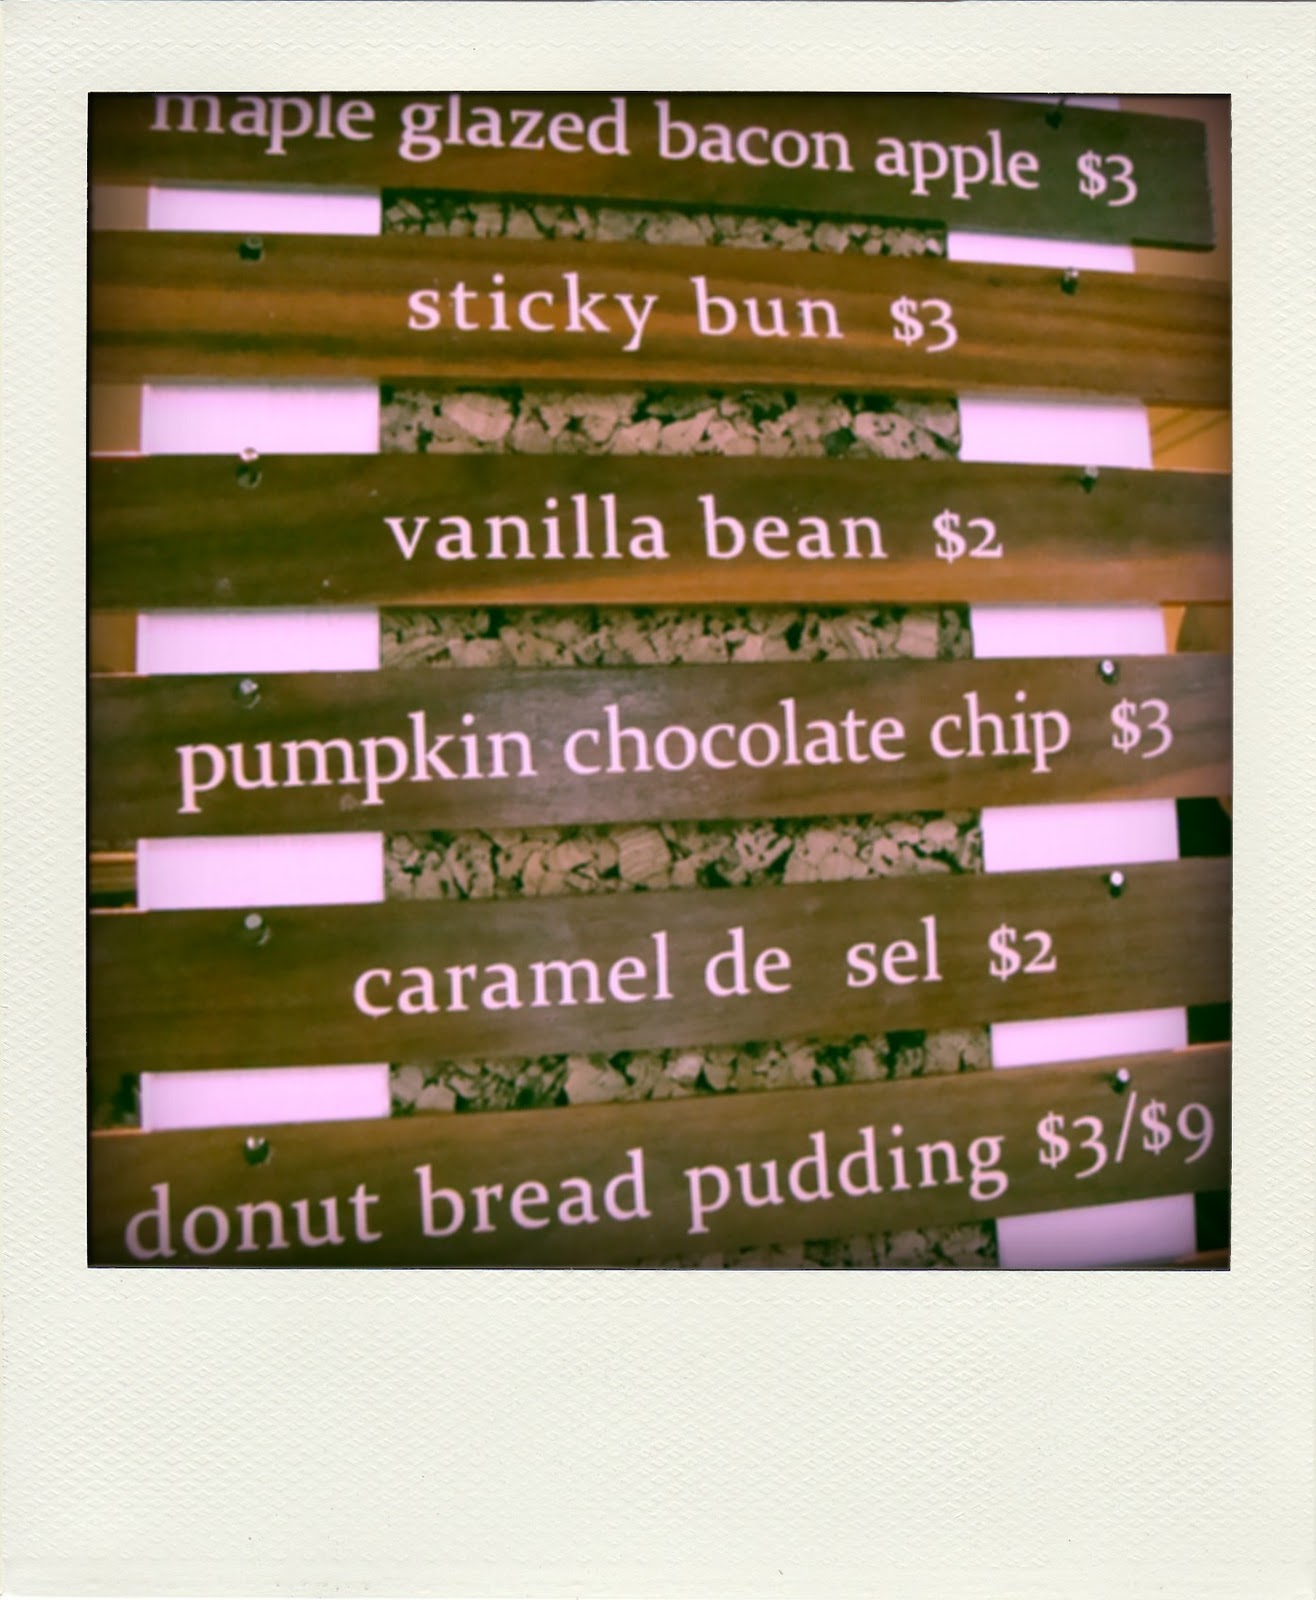 maple glazed bacon apple $3
sticky bun $3
vanilla bean $2
pumpkin chocolate chip $3
caramel de sel $2
donut bread pudding $3/$9